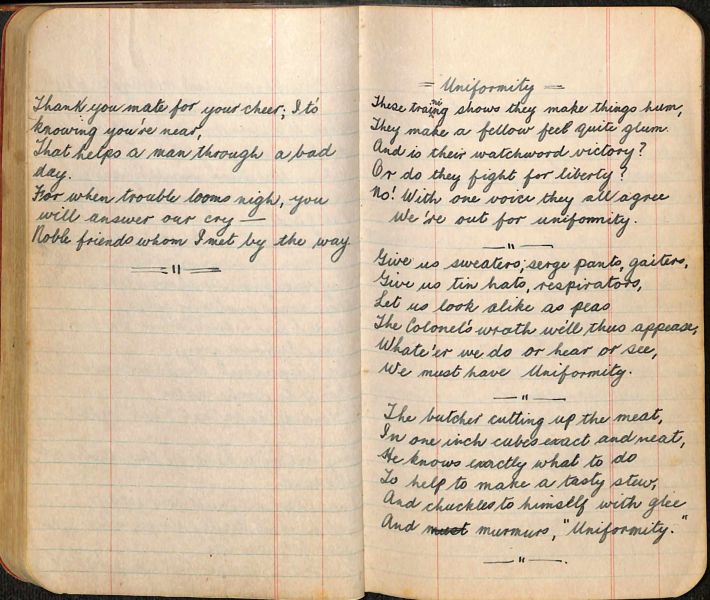 Thank you mate for your cheer; It's
knowing you're near,
That helps a man through a bad
day.
For when trouble looms nigh, you
will answer our cry —
Noble friends whom I met by the way
= Uniformity =
These training shows they make things hum,
They make a fellow feel quite glum.
And is their watchword victory?
Or do they fight for liberty?
No! With one voice they all agree
We're out for uniformity.
Give us sweaters; serge pants, gaiters,
Give us tin hats, respirators,
Let us look alike as peas
The Colonel's wrath we'll thus appease,
Whate'er we do or hear or see,
We must have Uniformity.
The butcher cutting up the meat,
In one inch cubes exact and neat,
He knows exactly what to do
To help to make a tasty stew,
And chuckles to himself with glee
And must murmurs, "Uniformity."